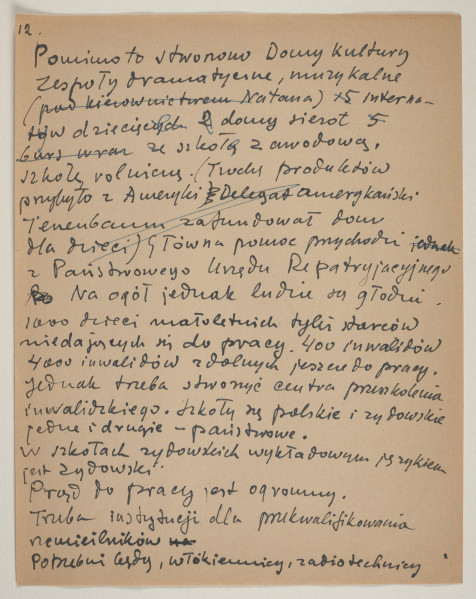 12.
Pomimo to stworzono Domy kultury
zespoły dramatyczne, muzykalne
(pod kierownictwem Natana) +5 interna-
tów dziecięcych 2 domy sierot 5
burs wraz ze szkołą zawodową,
szkołę rolniczą. (Trochę produktów
przybyło z Ameryki Delegat amerykański
Tenenbaum zafundował dom
dla dzieci) Główna pomoc przychodzi jednak
z Państwowego Urzędu Repatryjacyjnego
Na ogół jednak ludzie są głodni.
1000 dzieci małoletnich tylu starców
niedających się do pracy. 400 inwalidów
4000 inwalidów zdolnych jeszcze do pracy.
Jednak trzeba stworzyć centra przeszkolenia
inwalidzkiego. Szkoły są polskie i żydowskie
jedne i drugie – państwowe.
W szkołach żydowskich wykładowym językiem
jest żydowski.
Prąd do pracy jest ogromny.
Trzeba instytucji dla przekwalifikowania
rzemieślników na
Potrzebni są, włókiennicy, radiotechnicy